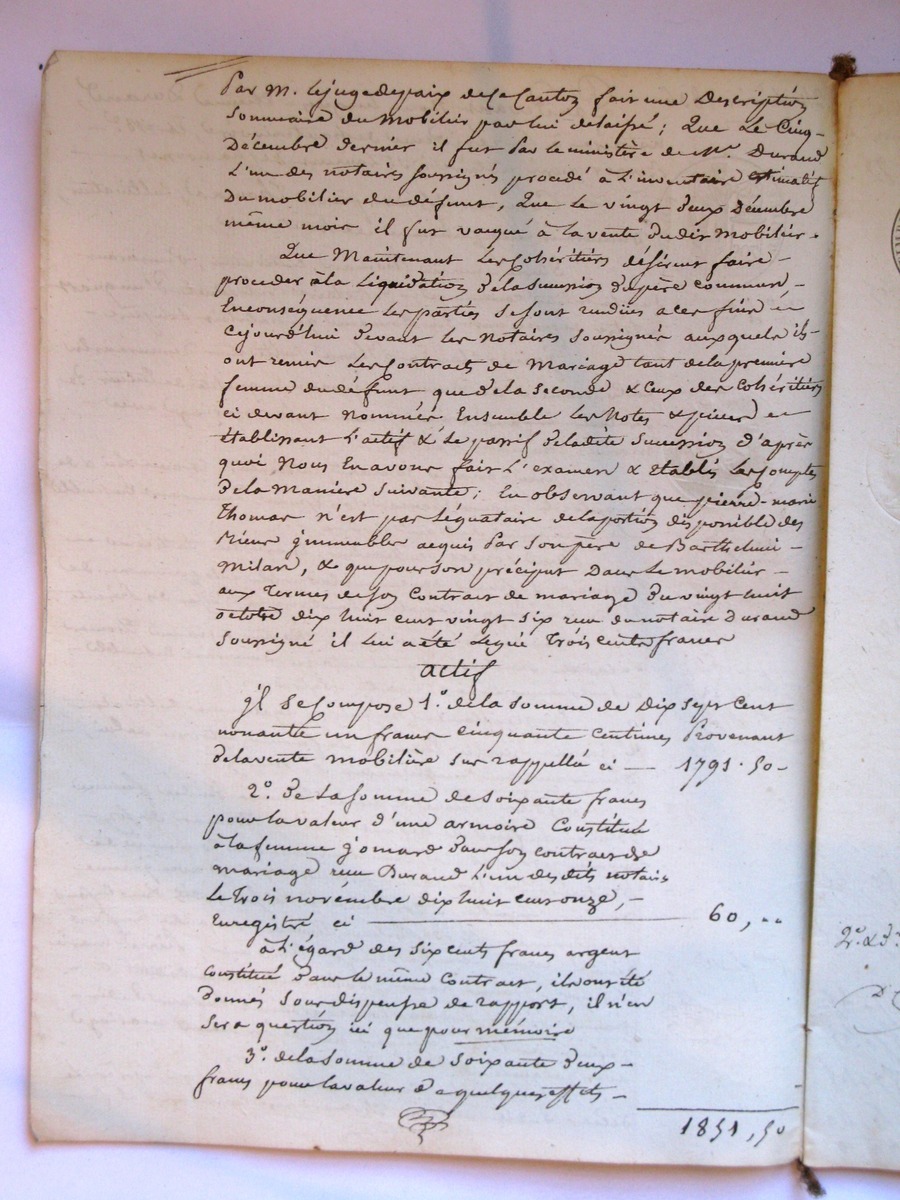 Par M. le juge de paix de ce Canton fait une Description
Sommaire du Mobilier par lui delaissé; Que Le Cinq
Décembre dernier il fut Par le ministère de Me. Durand
L'un des notaires soussignés procedé à l'inventaire estimatif
Du mobilier du défunt, Que Le vingt deux Décembre
même mois il fut vaqué à la vente dudit Mobilier.
Que Maintenant Les Cohéritiers désirent faire
proceder à la Liquidation de la succession du père commun,
En conséquence Les parties se sont rendües a ces fins
Cejourd'hui devant les Notaires Soussignés auxquels ils
ont remis Les Contracts de Mariage tant de la première
femme du défunt que de la seconde & Ceux des Cohéritiers
ci devant nommés Ensemble Les Notes & pieces
établissant L'actif & Le passif de la dite succession d'après
quoi Nous En avons fait L'examen & établi Les Comptes
de la Manière Suivante; En observant que pierre-marie
Thomas n'est pas Léguataire de la portion disponible des
Biens jmmeubles acquis Par son père de Barthelmi
Milan, & que pour son préciput Dans Le mobilier
aux Termes de son Contract de mariage du vingt huit
octobre dix huit cent vingt six reçu du notaire Durand
Soussigné il Lui a été Légué Trois cents francs
actif
jl se Compose 1°. de la somme de Dix sept Cent
nonante un francs cinquante centimes Provenant
de la vente mobilière sus rappellée ci — 1791.50-
2°. de La somme de soixante francs
pour la valeur d'une armoire Constituée
à la femme jomard dans son contract de
mariage reçu Durand L'un des dits notaires
Le Trois novembre dix huit cent onze,
Enregistré ci — 60, ""
à L'égard des six cents francs argent
Constitués dans le même Contract, ils ont été
donnés sous dispense de rapport, il n'en
sera question ici que pour mémoire
3°. de la somme de soixante deux
francs pour la valeur de quelques effets
1851,50
2°. & 3°